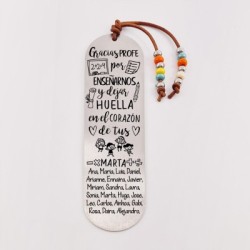 Gracias PROFE
2024 por
ENSEÑARNOS
y dejar
HUELLA
en el CORAZÓN
de tus
MARTA
Ana, Maria, Luis, Daniel,
Arianne, Ennaira, Javier,
Miriam, Sandra, Laura,
Sonia, Marta, Hugo, Jose,
Leo, Carlos, Ainhoa, Gabi,
Rosa, Diara, Alejandro,